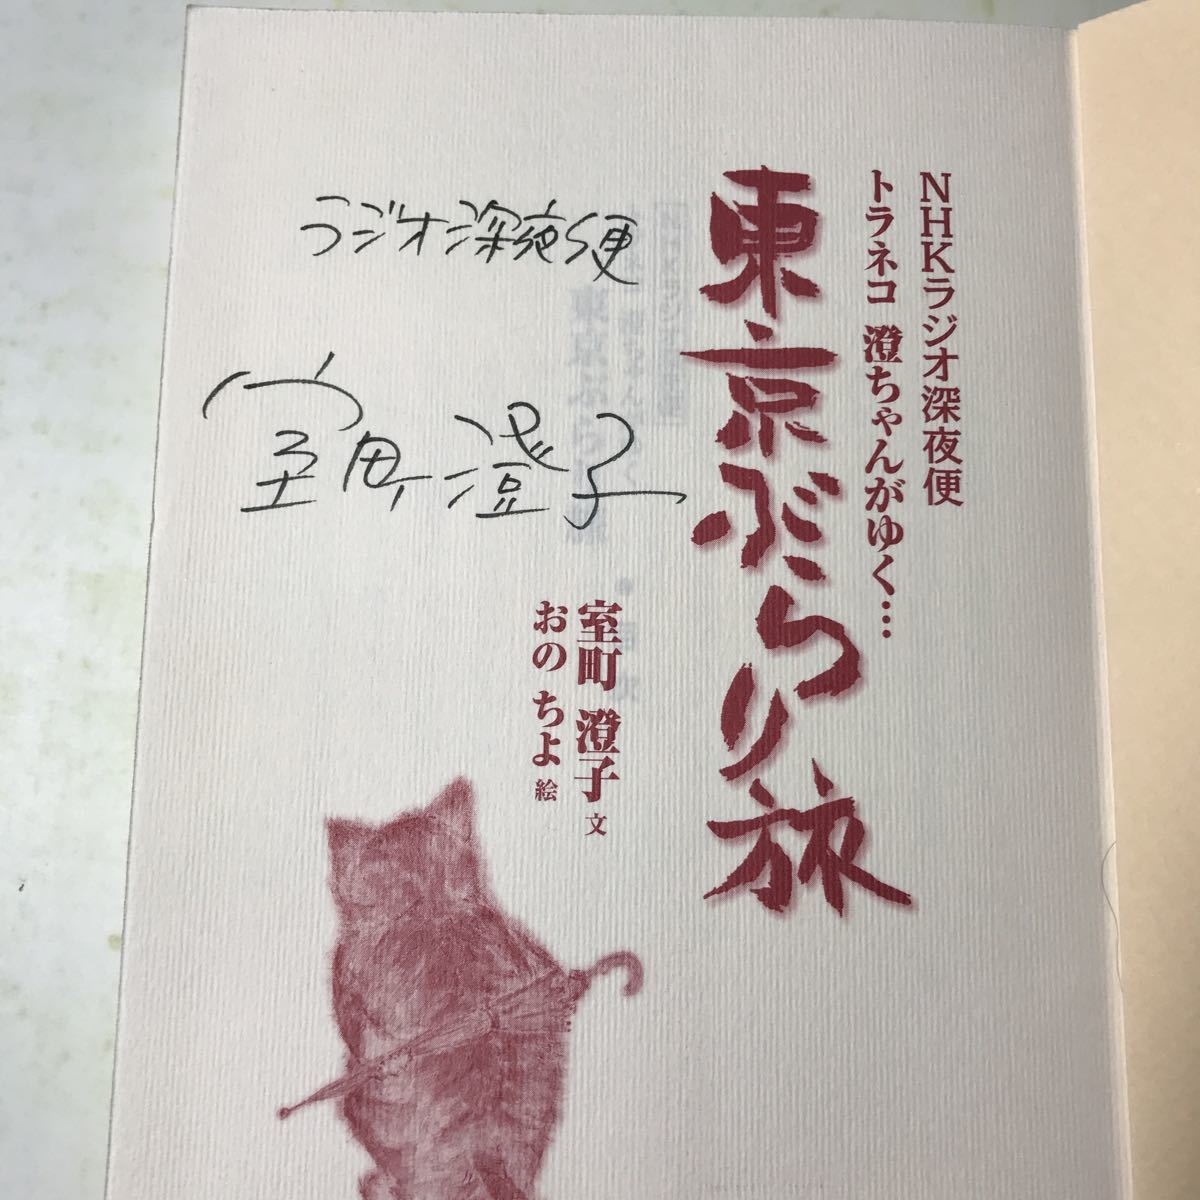 NHKラジオ深夜便
トラネコ 澄ちゃんがゆく…
東京ぶらり旅
室町 澄子 文
おの ちよ 絵
ラジオ深夜便
室町澄子